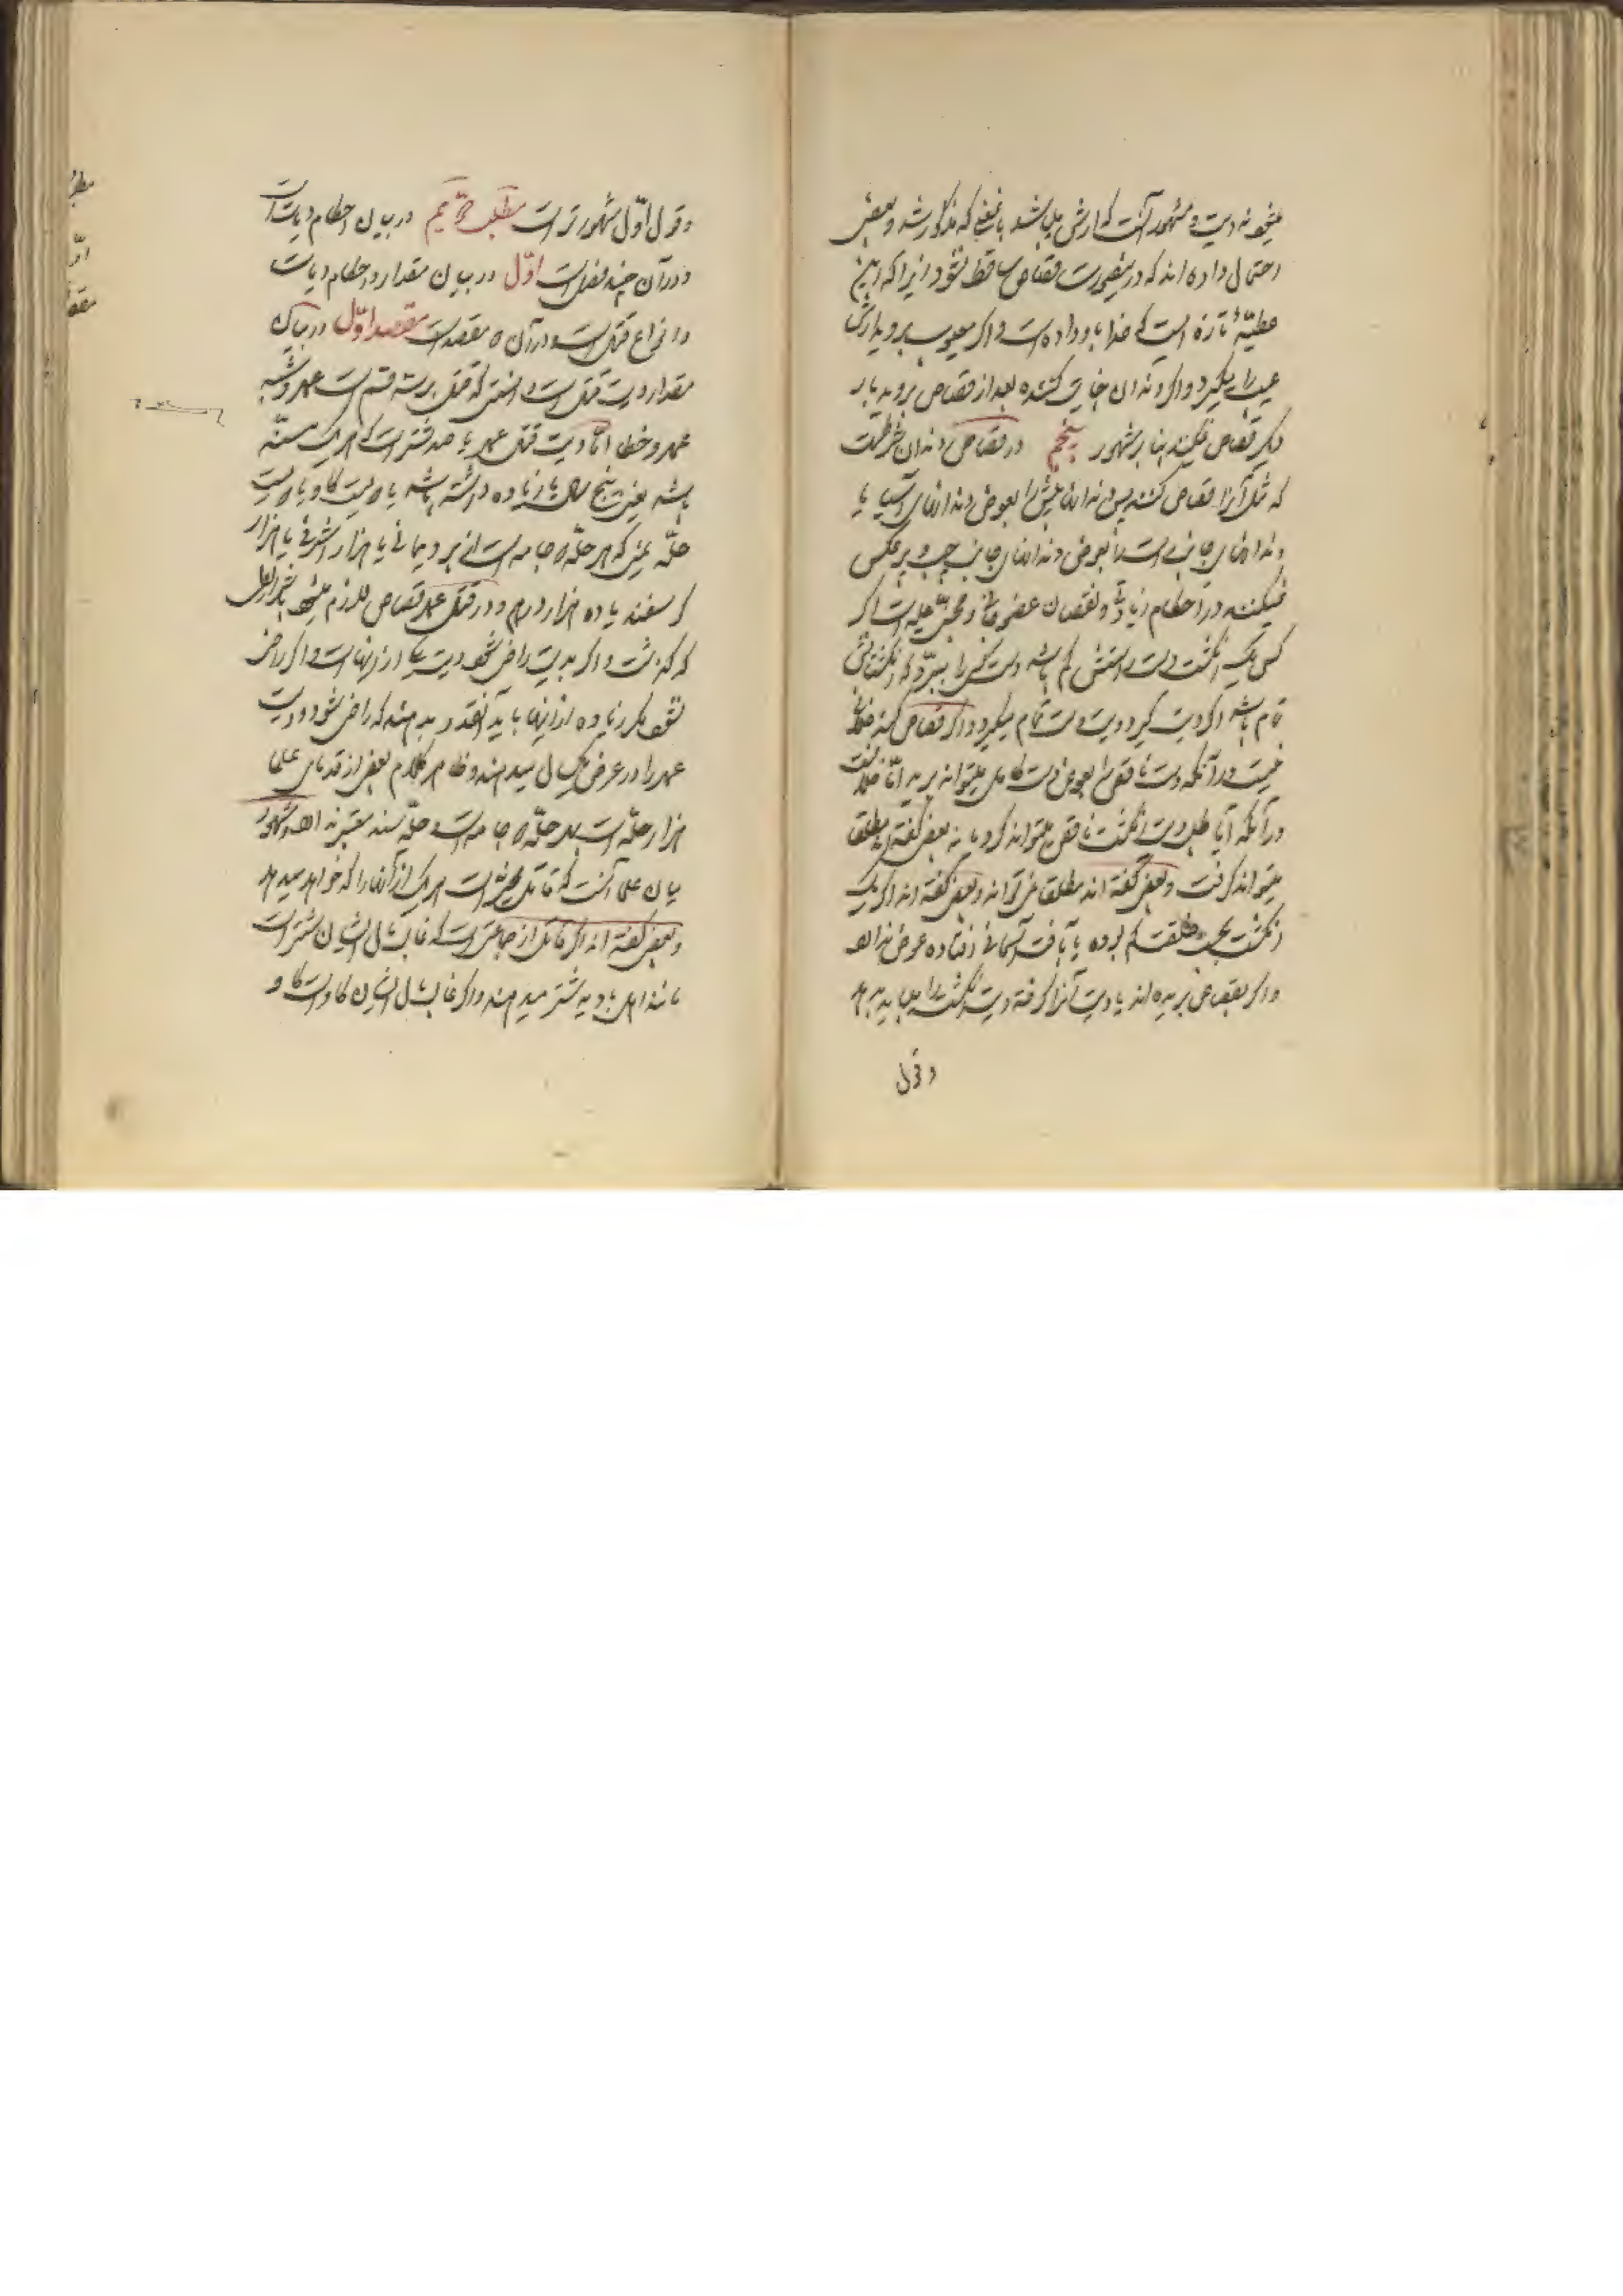 نه دیت و مشهور آنست که ارش میباشد بانحوی که مذکور شد و بعضی
احتمال داده اند که در اینصورت قصاص ساقط نشود زیرا که این
عطیّهٔ تازه ایست که خدا باو داده است و اگر معیوب بروید ارش
عیب را میگیرد و اگر دندان جنایت کننده بعد از قصاص بروید بار
دیگر قصاص نمیکنند بنا بر مشهور پنجم در قصاص دندان شرطست
که مثل آنرا قصاص کنند پس دندانهای پیش را بعوض دندانهای آسیا یا
دندانهای جانب راست را بعوض دندانهای جانب چپ و برعکس
نمیکنند در احکام زیادتی و نقصان عضو جانی و مجنی علیه است اگر
کسی یک انگشت دست راستش کم باشد دست کسی را ببرد که انگشتانش
تمام باشد اگر دیت گیرد دیت دست تمام میگیرد و اگر قصاص کند خلافی
نیست در آنکه دست ناقص را بعوض دست کامل میتواند برید امّا خلافست
در آنکه آیا طلب دیت انگشت ناقص میتواند کرد یا نه بعضی گفته اند مطلقا
میتواند گرفت و بعضی گفته اند مطلقا نمیتواند و بعضی گفته اند اگر یک
انگشت بحسب خلقت کم بوده یا بآفت آسمانی افتاده عوض ندارد
و اگر بقصاص بریده اند یا دیت آنرا گرفته دیت انگشت را میباید بدهد
و قول
و قول اوّل مشهورتر است مطلب دویم در بیان احکام دیاتست
و در آن چند فصل است اوّل در بیان مقدار و احکام دیات
و انواع قتل است و در آن مقصد است مقصد اوّل در بیان
مقدار دیت قتل است دانستی که قتل بر سه قسم است عمد و شبه
عمد و خطا امّا دیت قتل عمد صد شتر است که هر یک مسنّه
باشد یعنی پنج سال یا زیاده داشته باشد یا دویست گاو یا دویست
حلّه یمنی که هر حلّه دو جامه است از برد یمانی یا هزار اشرفی یا هزار
گوسفند یا ده هزار درهم و در قتل عمد قصاص لازم میشود
که گذشت و اگر بدیت راضی شود دیت یکی از اینهاست و اگر راضی
نشود مگر زیاده از اینها باید آنقدر بدهند که راضی شود و دیت
عمد را در عرض یکسال میدهند و ظاهر کلام بعضی از قدمای علما
هزار حلّه است و هر حلّه دو جامه است و حلّه معتبر نداند و مشهور
میان علما آنست که قاتل مخیّر است هر یک از آنها را که خواهد میدهد
و بعضی گفته اند اگر قاتل از جماعتی است که غالب مال ایشان شتر است
مانند اهل بادیه شتر میدهند و اگر غالب مال ایشان گاو است گاو